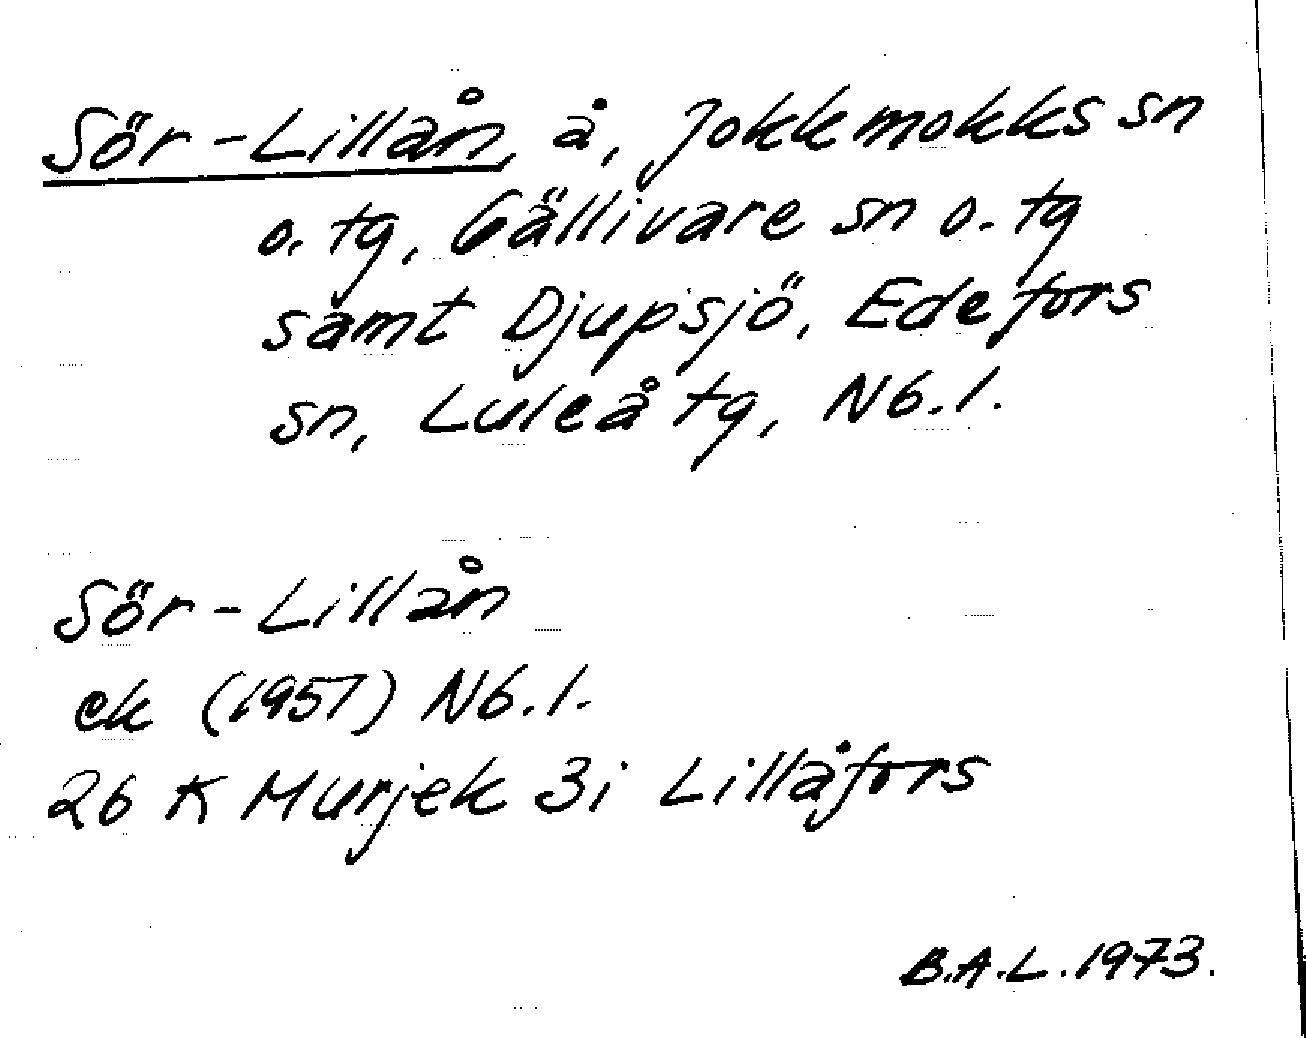 Sör-Lillån, å, Jokkmokks sn
o. tg, Gällivare sn o. tg
samt Djupsjö, Edefors
sn, Luleå tg, Nb. l.
Sör-Lillån
ek (1957) Nb. l.
26 K Murjek 3i Lillåfors
B.A.L. 1973.